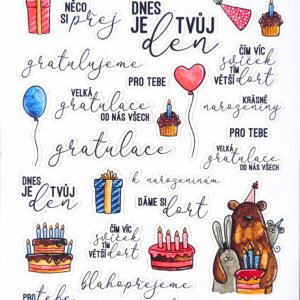 NĚCO
SI přej
DNES
JE TVŮJ
den
ČÍM VÍC
svíček
TÍM
VĚTŠÍ dort
gratulujeme
PRO TEBE
VELKÁ
gratulace
OD NÁS VŠECH
KRÁSNÉ
narozeniny
PRO TEBE
gratulace
VELKÁ
gratulace
OD NÁS VŠECH
DNES
JE TVŮJ
den
k narozeninám
DÁME SI
dort
ČÍM VÍC
svíček
TÍM
VĚTŠÍ dort
blahopřejeme
PRO
tebe